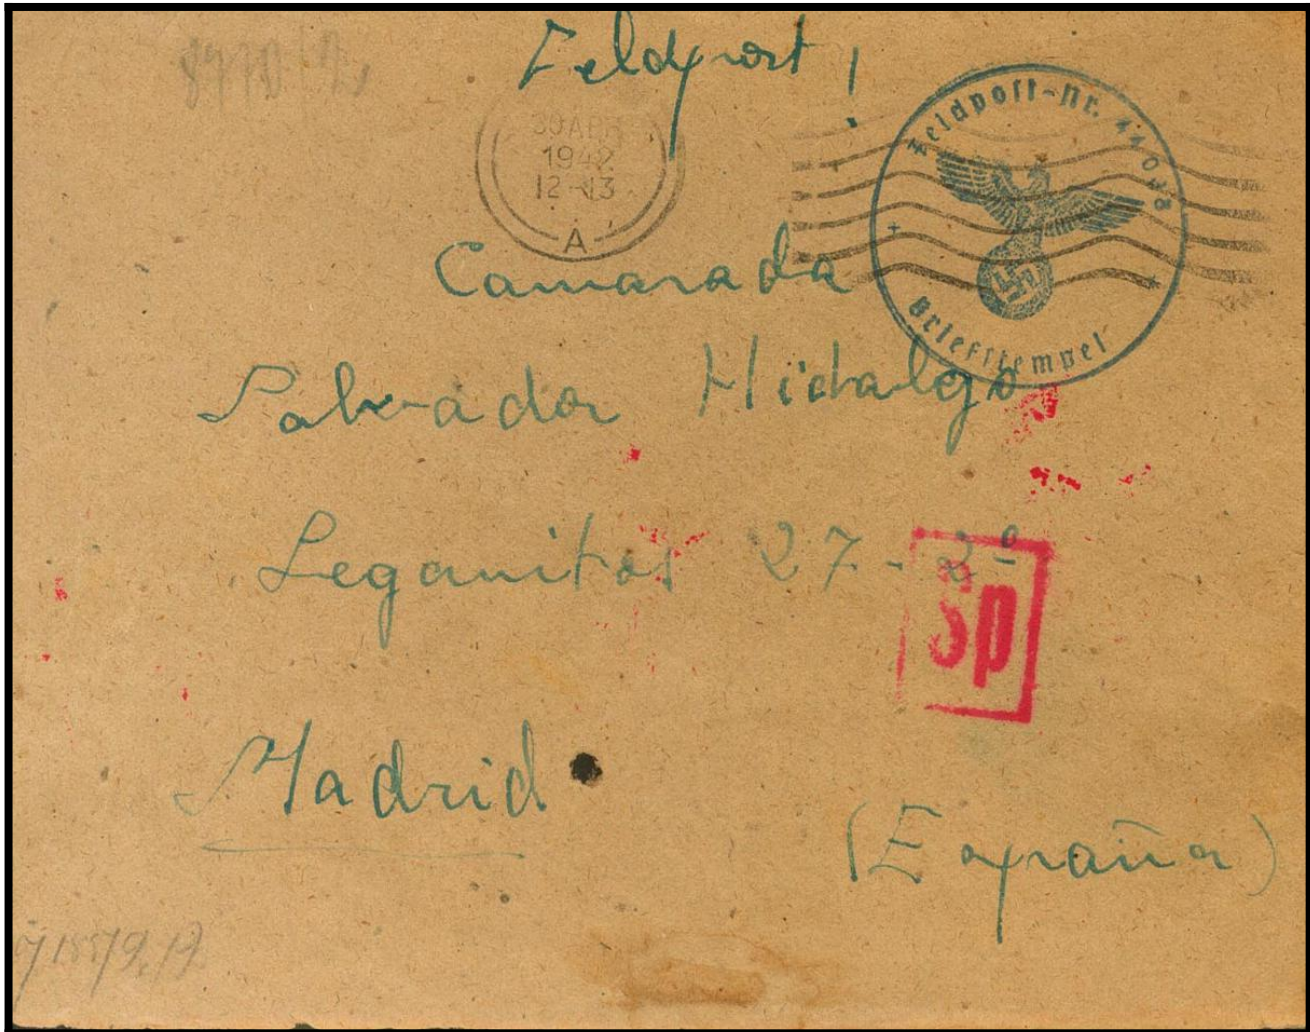 Feldpost!
30 APR
1942
12-13
A
Feldpost-Nr.
Briefstempel
Camarada
Salvador Hidalgo
Leganitos 27-
Sp
Madrid
(España)